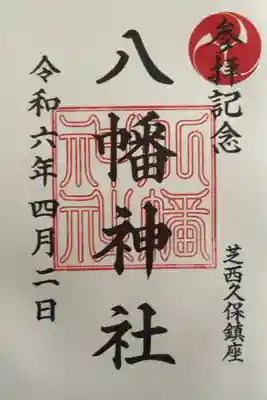 参拝記念
芝西久保鎮座
八幡神社
八幡神社
令和六年四月二日